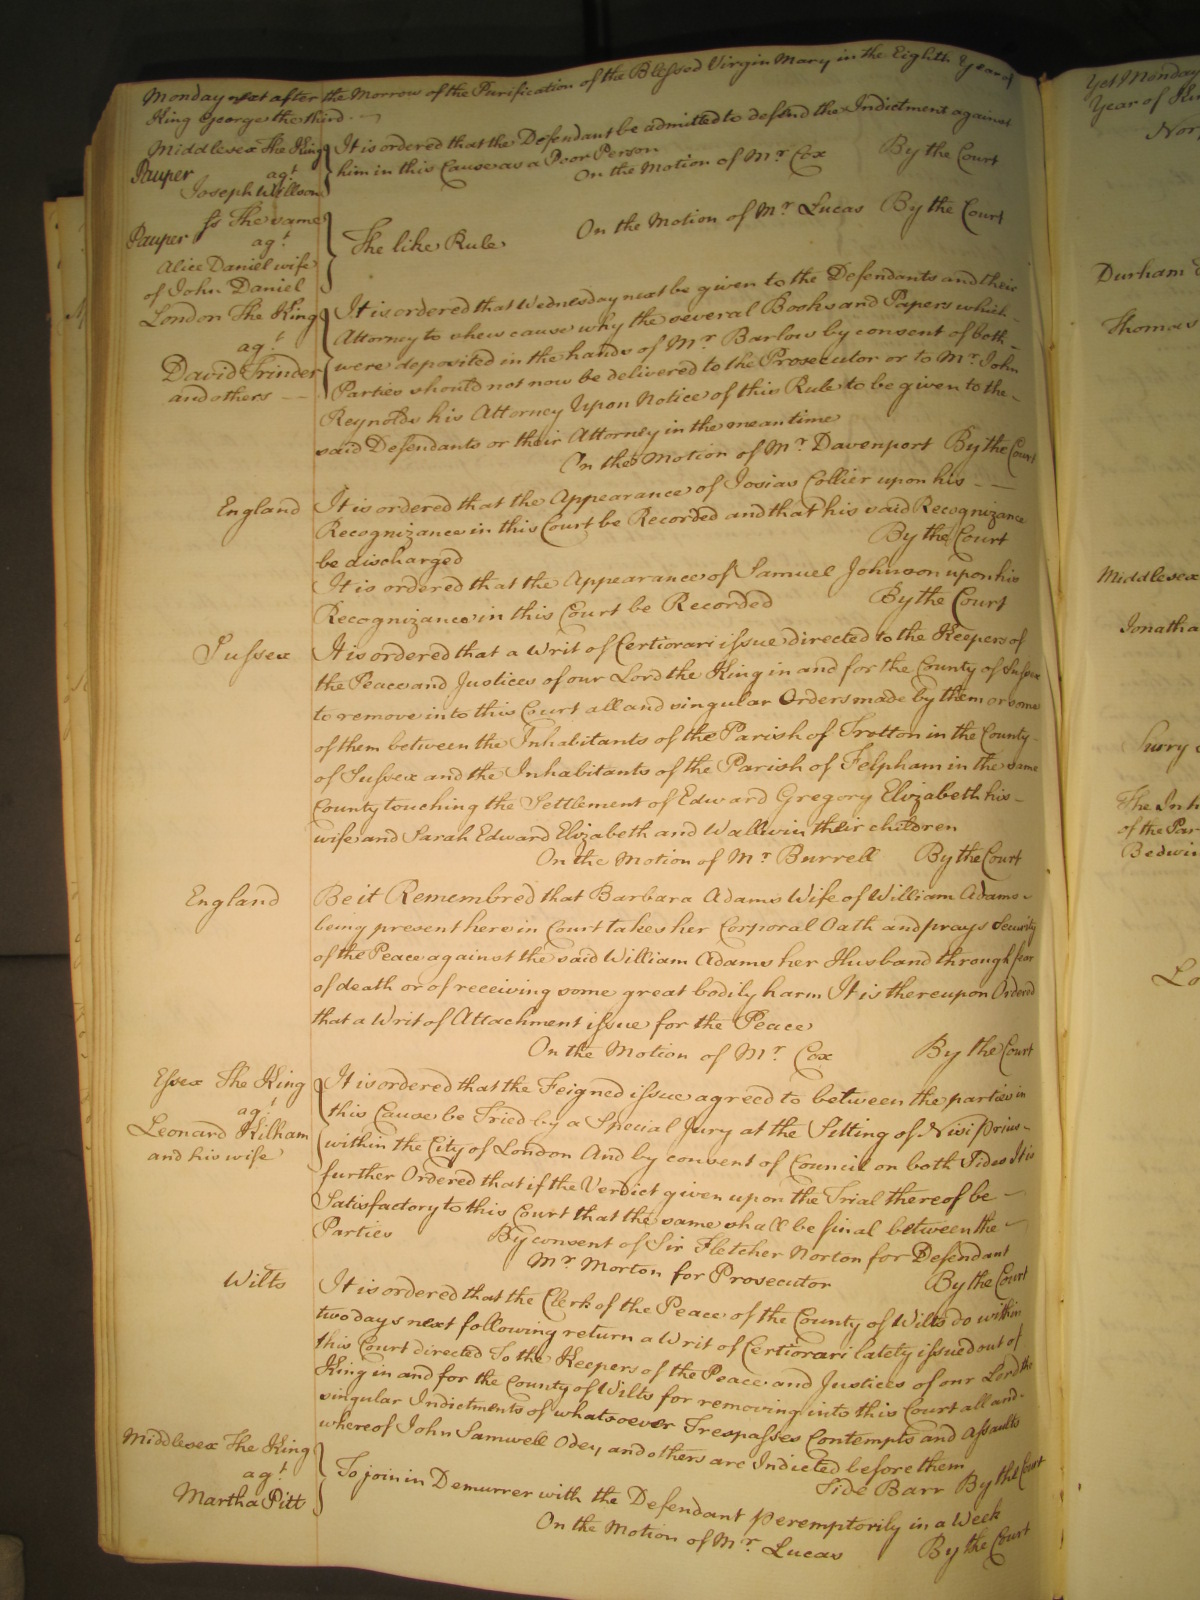 Monday next after the Morrow of the Purification of the Blessed Virgin Mary in the Eighth Year of
King George the third
Middlesex The King
Pauper agt
Joseph Willson
It is ordered that the Defendant be admitted to defend the Indictment against
him in this Cause as a Poor Person
On the Motion of Mr Cox By the Court
Ss The same
Pauper agt
Alice Daniel wife
of John Daniel
The like Rule
On the Motion of Mr Lucas By the Court
London The King
agt
David Trinder
and others
It is ordered that Wednesday next be given to the Defendants and their
Attorney to shew cause why the several Books and Papers which
were deposited in the hands of Mr Barlow by consent of both
Parties should not now be delivered to the Prosecutor or to Mr John
Reynolds his Attorney Upon Notice of this Rule to be given to the
said Defendants or their Attorney in the mean time
On the Motion of Mr Davenport By the Court
England It is ordered that the Appearance of Josias Collier upon his
Recognizance in this Court be Recorded and that his said Recognizance
be discharged By the Court
It is ordered that the Appearance of Samuel Johnson upon his
Recognizance in this Court be Recorded By the Court
Sussex It is ordered that a Writ of Certiorari issue directed to the Keepers of
the Peace and Justices of our Lord the King in and for the County of Sussex
to remove into this Court all and singular Orders made by them or some
of them between the Inhabitants of the Parish of Trotton in the County
of Sussex and the Inhabitants of the Parish of Felpham in the same
County touching the Settlement of Edward Gregory Elizabeth his
wife and Sarah Edward Elizabeth and Wallwin their children
On the Motion of Mr Burrell By the Court
England Be it Remembred that Barbara Adams Wife of William Adams
being present here in Court takes her Corporal Oath and prays Security
of the Peace against the said William Adams her Husband through fear
of death or of receiving some great bodily harm It is thereupon Ordered
that a Writ of Attachment issue for the Peace
On the Motion of Mr Cox By the Court
Essex The King
agt
Leonard Kilham
and his wife
It is ordered that the Feigned issue agreed to between the parties in
this Cause be Tried by a Special Jury at the Sitting of Nisi prius
within the City of London And by consent of Council on both Sides It is
further Ordered that if the Verdict given upon the Trial thereof be
Satisfactory to this Court that the same shall be final between the
Parties By consent of Sir Fletcher Norton for Defendant
Mr Morton for Prosecutor By the Court
Wilts It is ordered that the Clerk of the Peace of the County of Wilts do within
two days next following return a Writ of Certiorari lately issued out of
this Court directed To the Keepers of the Peace and Justices of our Lord the
King in and for the County of Wilts for removing into this Court all and
singular Indictments of whatsoever Trespasses Contempts and Assaults
whereof John Samwell Odey and others are Indicted before them
Side Barr By the Court
Middlesex The King
agt
Martha Pitt
To join in Demurrer with the Defendant peremptorily in a Week
On the Motion of Mr Lucas By the Court
Yet Monday
Year of
Durham
Thomas
Middlesex
Jonatha
Surry
The Inh
of the Par
Bedwin
Lo